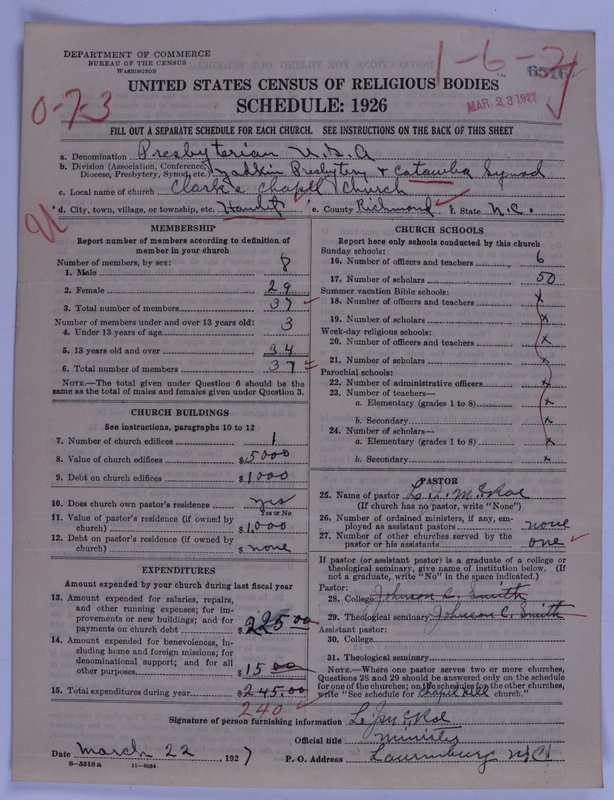 DEPARTMENT OF COMMERCE
BUREAU OF THE CENSUS
WASHINGTON
1-6-7
6516
MAR 23 1927
0-7-3
UNITED STATES CENSUS OF RELIGIOUS BODIES
SCHEDULE: 1926
FILL OUT A SEPARATE SCHEDULE FOR EACH CHURCH. SEE INSTRUCTIONS ON THE BACK OF THIS SHEET
a. Denomination Presbyterian U.S.A
b. Division (Association, Conference, Diocese, Presbytery, Synod, etc.) Yadkin Presbytery & Catawba Synod
c. Local name of church Clark's Chapel Church
d. City, town, village, or township, etc. Hamlet e. County Richmond f. State N.C.
MEMBERSHIP
Report number of members according to definition of
member in your church
Number of members, by sex:
1. Male 8
2. Female 29
3. Total number of members 37
Number of members under and over 13 years old:
4. Under 13 years of age 3
5. 13 years old and over 34
6. Total number of members 37
NOTE.—The total given under Question 6 should be the
same as the total of males and females given under Question 3.
CHURCH BUILDINGS
See instructions, paragraphs 10 to 12
7. Number of church edifices 1
8. Value of church edifices $5000
9. Debt on church edifices $1000
10. Does church own pastor's residence yes
Yes or No
11. Value of pastor's residence (if owned by
church) $1,000
12. Debt on pastor's residence (if owned by
church) $ none
EXPENDITURES
Amount expended by your church during last fiscal year
13. Amount expended for salaries, repairs,
and other running expenses; for im-
provements or new buildings; and for
payments on church debt $225.00
14. Amount expended for benevolences, in-
cluding home and foreign missions; for
denominational support; and for all
other purposes $15.00
15. Total expenditures during year $245.00
240
CHURCH SCHOOLS
Report here only schools conducted by this church
Sunday schools:
16. Number of officers and teachers 6
17. Number of scholars 50
Summer vacation Bible schools:
18. Number of officers and teachers x
19. Number of scholars x
Week-day religious schools:
20. Number of officers and teachers x
21. Number of scholars x
Parochial schools:
22. Number of administrative officers x
23. Number of teachers—
a. Elementary (grades 1 to 8) x
b. Secondary x
24. Number of scholars—
a. Elementary (grades 1 to 8) x
b. Secondary x
PASTOR
25. Name of pastor L. J. McRae
(If church has no pastor, write "None")
26. Number of ordained ministers, if any, em-
ployed as assistant pastors none
27. Number of other churches served by the
pastor or his assistants one
If pastor (or assistant pastor) is a graduate of a college or
theological seminary, give name of institution below. (If
not a graduate, write "No" in the space indicated.)
Pastor:
28. College Johnson C. Smith
29. Theological seminary Johnson C. Smith
Assistant pastor:
30. College
31. Theological seminary
NOTE.—Where one pastor serves two or more churches,
Questions 28 and 29 should be answered only on the schedule
for one of the churches; on the schedules for the other churches,
write "See schedule for Chapel Hill church."
Signature of person furnishing information L. J. McRae
Official title Minister
Date March 22, 1927 P. O. Address Laurinburg N.C.
8-5518a 11-9034